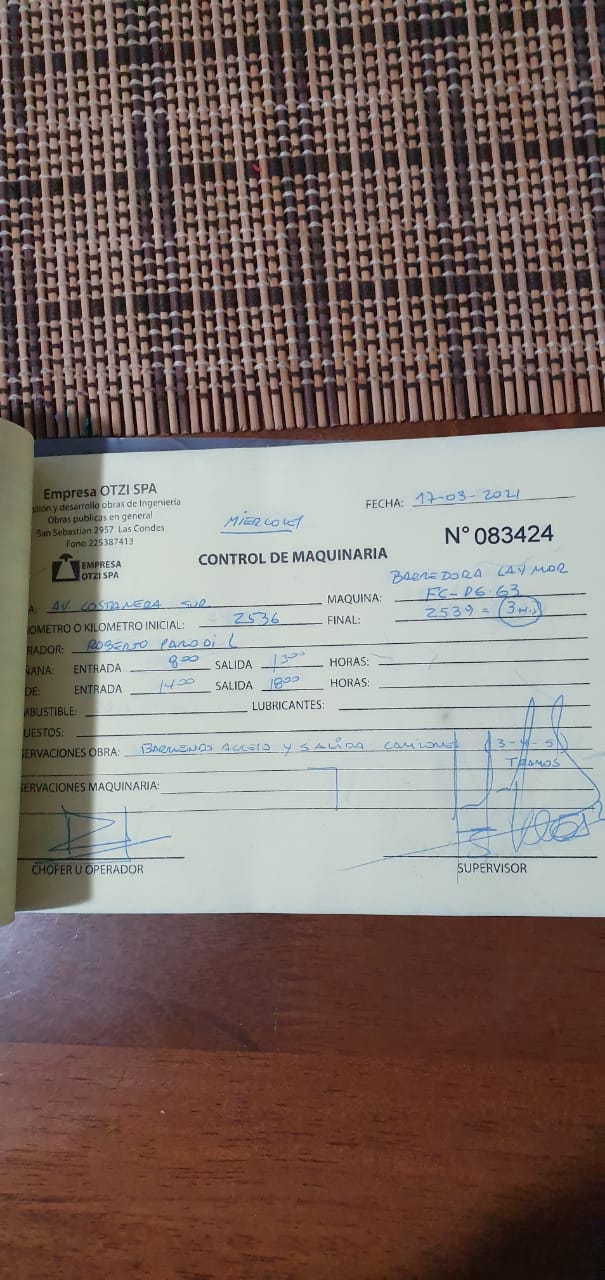 Empresa OTZI SPA
stión y desarrollo obras de Ingeniería
Obras publicas en general
San Sebastian 2957 Las Condes
Fono 225387413
EMPRESA
OTZI SPA
MIERCOLES
FECHA: 17-03-2021
N° 083424
CONTROL DE MAQUINARIA
BARREDORA LAYMOR
A: AV COSTANERA SUR. MAQUINA: FC-DG 63
OMETRO O KILOMETRO INICIAL: 2536 FINAL: 2539 = 3 Hrs
RADOR: ROBERTO PARODI L
ANA: ENTRADA 8:00 SALIDA 13:00 HORAS:
DE: ENTRADA 14:00 SALIDA 18:00 HORAS:
MBUSTIBLE: LUBRICANTES:
UESTOS:
SERVACIONES OBRA: BARRIENDO ACCESO Y SALIDA CAMIONES 3-4-5
TRAMOS
SERVACIONES MAQUINARIA:
CHOFER U OPERADOR
SUPERVISOR